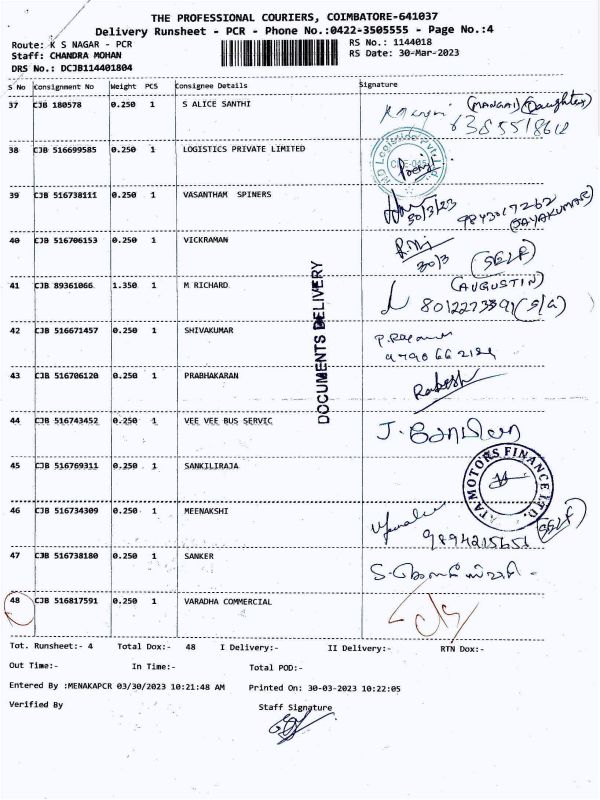 THE PROFESSIONAL COURIERS, COIMBATORE-641037
Delivery Runsheet - PCR - Phone No.:0422-3505555 - Page No.:4
Route: K S NAGAR - PCR RS No.: 1144018
Staff: CHANDRA MOHAN RS Date: 30-Mar-2023
DRS No.: DCJB114401804
S No Consignment No Weight PCS Consignee Details Signature
37 CJB 180578 0.250 1 S ALICE SANTHI (MANGAI) (Daughter)
6385518612
38 CJB 516699585 0.250 1 LOGISTICS PRIVATE LIMITED
39 CJB 516738111 0.250 1 VASANTHAM SPINERS
30/3/23 9843017262
(JAYAKUMAR)
40 CJB 516706153 0.250 1 VICKRAMAN
30/3 (SELF)
41 CJB 89361066 1.350 1 M RICHARD (AUGUSTIN)
DOCUMENTS DELIVERY
42 CJB 516671457 0.250 1 SHIVAKUMAR
43 CJB 516706120 0.250 1 PRABHAKARAN Rakesh
44 CJB 516743452 0.250 1 VEE VEE BUS SERVIC
45 CJB 516769311 0.250 1 SANKILIRAJA
TATA MOTORS FINANCE LTD.
46 CJB 516734309 0.250 1 MEENAKSHI
9894215651 (SELF)
47 CJB 516738180 0.250 1 SANKER
48 CJB 516817591 0.250 1 VARADHA COMMERCIAL
Tot. Runsheet:- 4 Total Dox:- 48 I Delivery:- II Delivery:- RTN Dox:-
Out Time:- In Time:- Total POD:-
Entered By :MENAKAPCR 03/30/2023 10:21:48 AM Printed On: 30-03-2023 10:22:05
Verified By Staff Signature